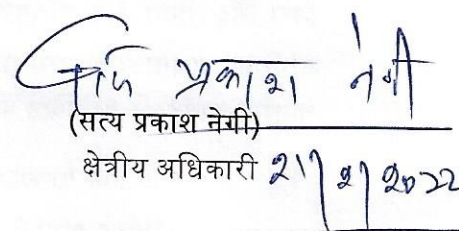 सत्य प्रकाश नेगी
(सत्य प्रकाश नेगी)
क्षेत्रीय अधिकारी 21/2/2022